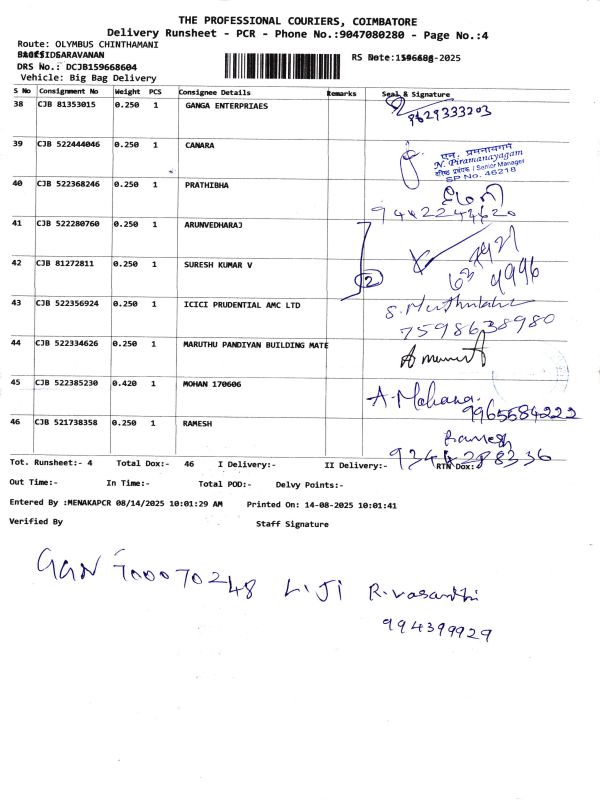 THE PROFESSIONAL COURIERS, COIMBATORE
Delivery Runsheet - PCR - Phone No.:9047080280 - Page No.:4
Route: OLYMBUS CHINTHAMANI
SARAVANAN
DRS No.: DCJB159668604
RS Date: -2025
Vehicle: Big Bag Delivery
S No Consignment No Weight PCS Consignee Details Remarks Seal & Signature
38 CJB 81353015 0.250 1 GANGA ENTERPRIAES 9629333203
39 CJB 522444046 0.250 1 CANARA
एन. प्रमनायगम
N. Piramanayagam
वरिष्ठ प्रबंधक / Senior Manager
SP No. 46218
40 CJB 522368246 0.250 1 PRATHIBHA
9442244620
41 CJB 522280760 0.250 1 ARUNVEDHARAJ
42 CJB 81272811 0.250 1 SURESH KUMAR V
2
4996
43 CJB 522356924 0.250 1 ICICI PRUDENTIAL AMC LTD
7598638980
44 CJB 522334626 0.250 1 MARUTHU PANDIYAN BUILDING MATE
45 CJB 522385230 0.420 1 MOHAN 170606 A. Mohana
9965584222
46 CJB 521738358 0.250 1 RAMESH Ramesh
9344288336
Tot. Runsheet:- 4 Total Dox:- 46 I Delivery:- II Delivery:- RTN Dox:-
Out Time:- In Time:- Total POD:- Delvy Points:-
Entered By :MENAKAPCR 08/14/2025 10:01:29 AM Printed On: 14-08-2025 10:01:41
Verified By Staff Signature
GGN 700070248 L. JI R. Vasanthi
994399929